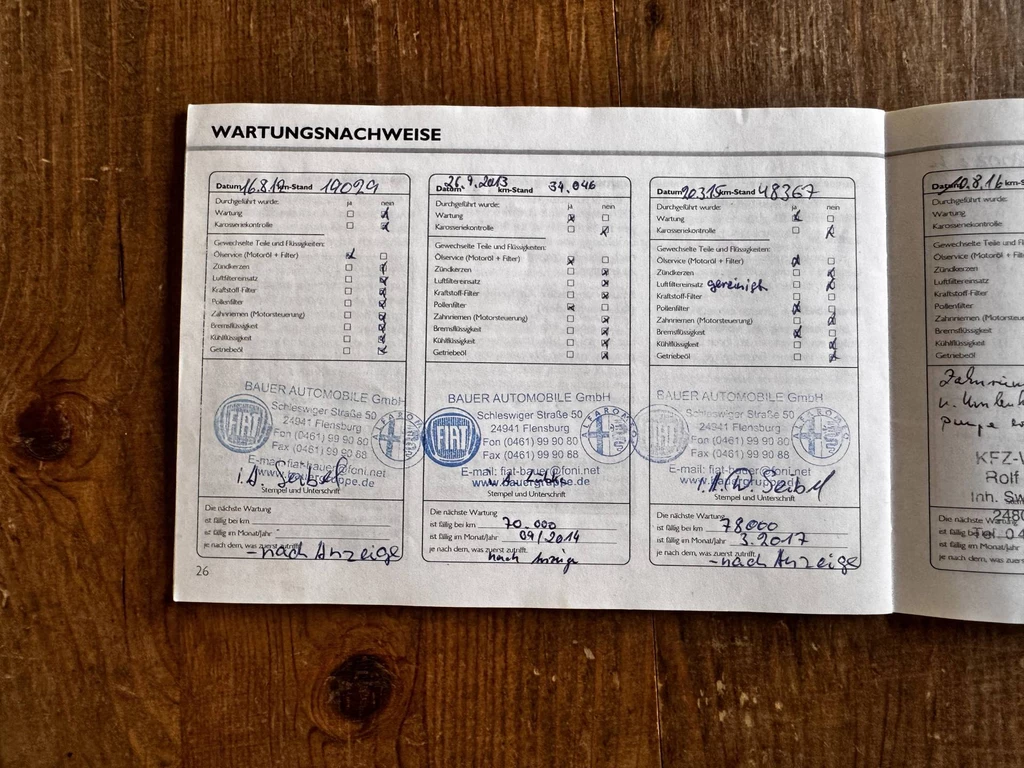 WARTUNGSNACHWEISE
Datum 16.8.12 km-Stand 19029
Durchgeführt wurde: ja nein
Wartung
Karosseriekontrolle
Gewechselte Teile und Flüssigkeiten:
Ölservice (Motoröl + Filter)
Zündkerzen
Luftfiltereinsatz
Kraftstoff-Filter
Pollenfilter
Zahnriemen (Motorsteuerung)
Bremsflüssigkeit
Kühlflüssigkeit
Getriebeöl
BAUER AUTOMOBILE GmbH
Schleswiger Straße 50
24941 Flensburg
Fon (0461) 99 90 80
Fax (0461) 99 90 88
FIAT
E-mail: fiat-bauer@foni.net
www.bauergruppe.de
i.A. Seibel
Stempel und Unterschrift
Die nächste Wartung
ist fällig bei km
ist fällig im Monat/Jahr
je nach dem, was zuerst zutrifft.
- nach Anzeige
26
Datum 26.9.2013 km-Stand 34.046
Durchgeführt wurde: ja nein
Wartung
Karosseriekontrolle
Gewechselte Teile und Flüssigkeiten:
Ölservice (Motoröl + Filter)
Zündkerzen
Luftfiltereinsatz
Kraftstoff-Filter
Pollenfilter
Zahnriemen (Motorsteuerung)
Bremsflüssigkeit
Kühlflüssigkeit
Getriebeöl
BAUER AUTOMOBILE GmbH
Schleswiger Straße 50
24941 Flensburg
Fon (0461) 99 90 80
Fax (0461) 99 90 88
FIAT
ALFA ROMEO
E-mail: fiat-bauer@foni.net
www.bauergruppe.de
Stempel und Unterschrift
Die nächste Wartung
ist fällig bei km 70.000
ist fällig im Monat/Jahr 09/2014
je nach dem, was zuerst zutrifft.
nach Anzeige
Datum 20.3.15 km-Stand 48367
Durchgeführt wurde: ja nein
Wartung
Karosseriekontrolle
Gewechselte Teile und Flüssigkeiten:
Ölservice (Motoröl + Filter)
Zündkerzen
Luftfiltereinsatz gereinigt
Kraftstoff-Filter
Pollenfilter
Zahnriemen (Motorsteuerung)
Bremsflüssigkeit
Kühlflüssigkeit
Getriebeöl
BAUER AUTOMOBILE GmbH
Schleswiger Straße 50
24941 Flensburg
Fon (0461) 99 90 80
Fax (0461) 99 90 88
FIAT
ALFA ROMEO
E-mail: fiat-bauer@foni.net
www.bauergruppe.de
i.A. W. Seibel
Stempel und Unterschrift
Die nächste Wartung
ist fällig bei km 78000
ist fällig im Monat/Jahr 3.2017
je nach dem, was zuerst zutrifft.
- nach Anzeige
Datum 10.8.16 km-S
Durchgeführt wurde:
Wartung
Karosseriekontrolle
Gewechselte Teile und
Ölservice (Motoröl + Fil
Zündkerzen
Luftfiltereinsatz
Kraftstoff-Filter
Pollenfilter
Zahnriemen (Motorsteu
Bremsflüssigkeit
Kühlflüssigkeit
Getriebeöl
Zahnrie
u. Umlenk
KFZ-W
Rolf
Inh. Sw
2480
Tel. 04
Die nächste Wartung
ist fällig bei km
ist fällig im Monat/Jahr
je nach dem, was zuerst